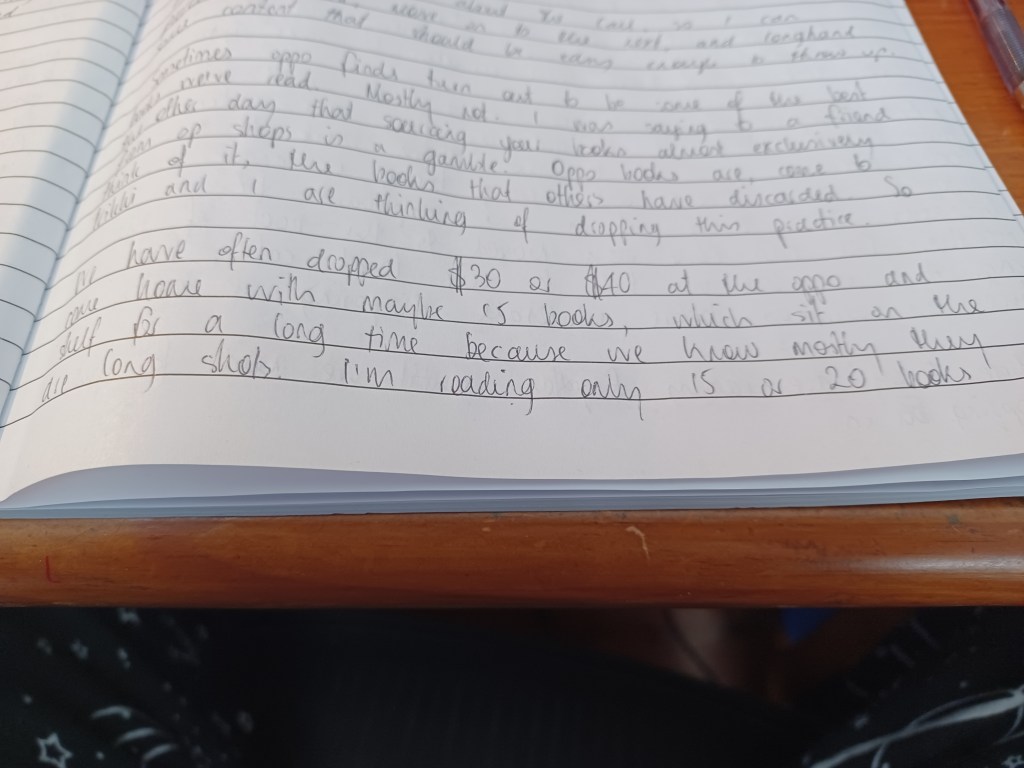 about its case so I can
content that move on to the next, and longhand
should be easy enough to throw up.
sometimes oppo finds turn out to be some of the best
we've read. Mostly not. I was saying to a friend
other day that sourcing your books almost exclusively
op shops is a gamble. Oppo books are, come to
think of it, the books that others have discarded. So
and I are thinking of dropping this practice.
We have often dropped $30 or $40 at the oppo and
come home with maybe 15 books, which sit on the
shelf for a long time because we know mostly they
are long shots. I'm reading only 15 or 20 books